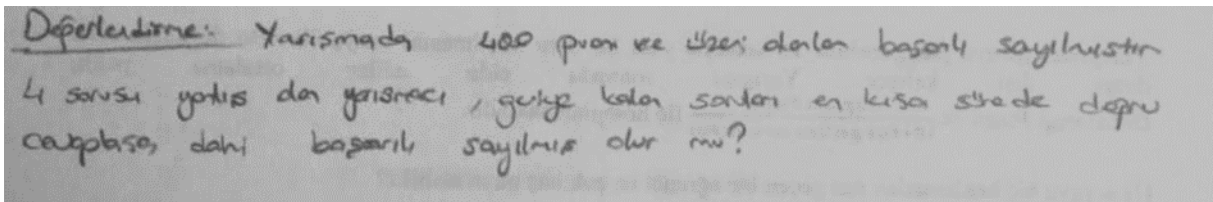 Değerlendirme: Yarışmada 400 puan ve üzeri alanlar başarılı sayılmıştır
4 sorusu yanlış olan yarışmacı, geriye kalan soruları en kısa sürede doğru
cevaplasa, dahi başarılı sayılmış olur mu?